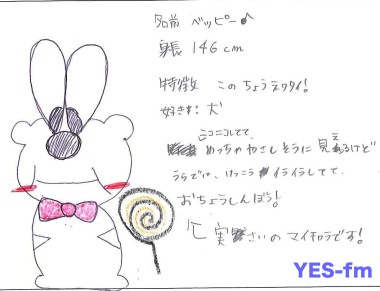 名前 ベッピー♪
身長 146cm
特徴 このちょうネクタイ!
好きな: 犬
ニコニコしてて
めっちゃやさしそうに見えるけど
うらでは、けっこうイライラしてて
おちょうしんぼう!
実さいのマイキャラです!
YES-fm